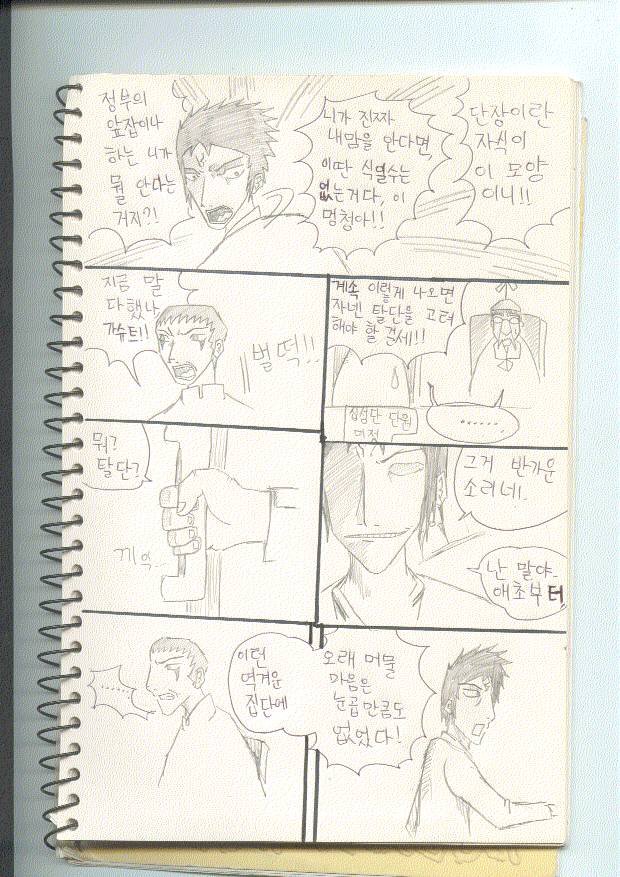 정부의
앞잡이나
하는 니가
뭘 안다는
거지?!
니가 진짜
내맘을 안다면,
이딴 식일수는
없는거다, 이
멍청아!!
단장이란
자식이
이 모양
이니!!
지금 말
다했냐
가슈트!!
벌떡!!
계속 이렇게 나오면
자넨 탈단을 고려
해야 할 걸세!!
십성단 단원
미정
.......
뭐?
탈단?
끼익..
그거 반가운
소리네.
난 말야..
애초부터
이런
역겨운
집단에
......
오래 머물
마음은
눈곱만큼도
없었다!